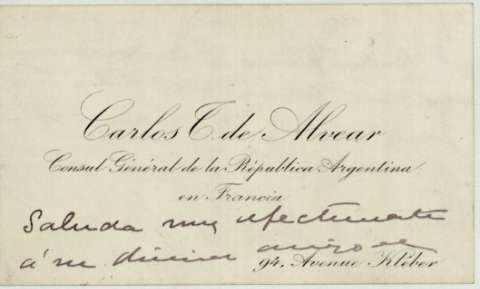 Carlos T. de Alvear
Consul Général de la République Argentina
en Francia
Saluda muy afectuosate
á su
94, Avenue Kléber